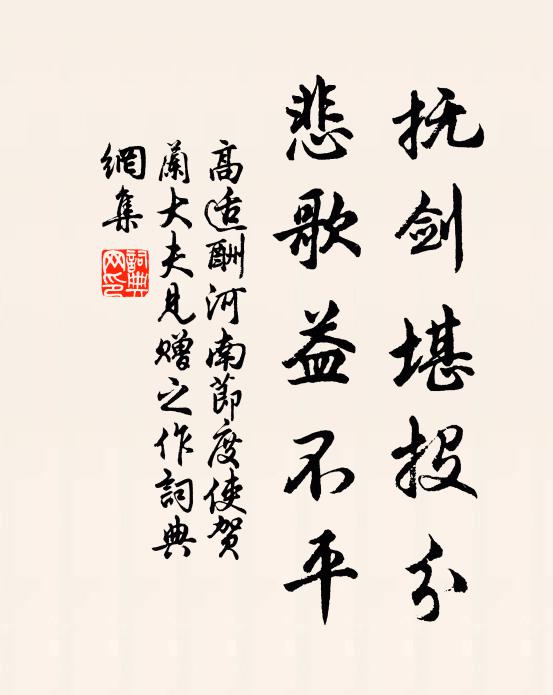 抚剑堪投分
悲歌益不平
高适酬河南節度使贺
蘭大夫見赠之作詞典
網集
詞典网印